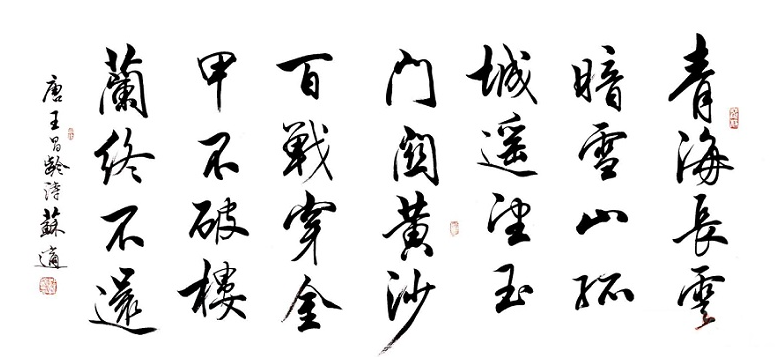 青海長雲
暗雪山孤
城遥望玉
門關黄沙
百戰穿金
甲不破樓
蘭終不還
唐王昌齡詩蘇適